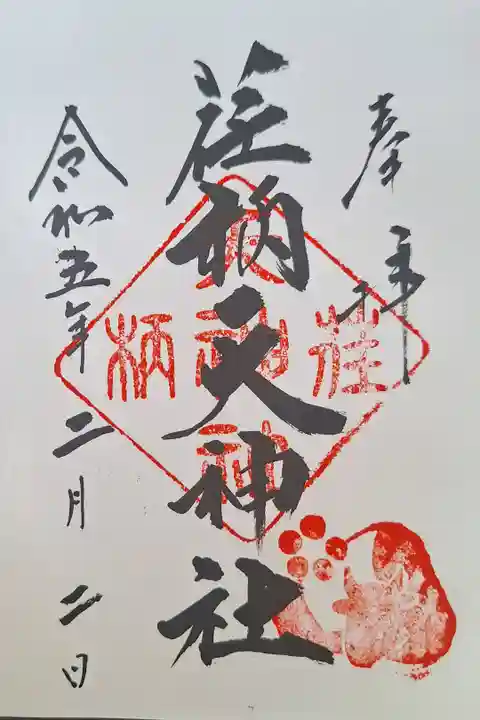 奉拝
荏柄天神社
令和五年二月二日
荏
柄